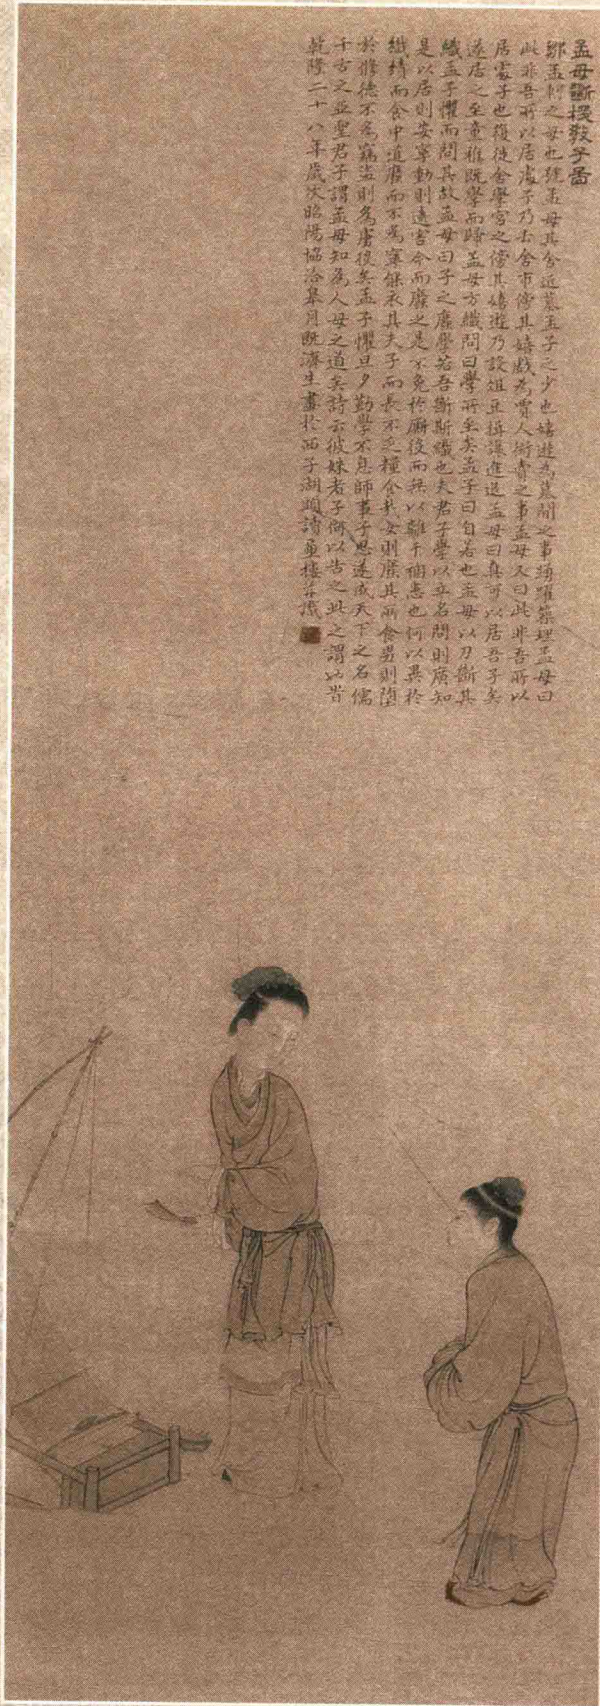 孟母斷機教子啚
鄒孟軻之母也號孟母其舍近墓孟子之少也嬉遊為墓間之事踴躍築埋孟母曰
此非吾所以居處子乃去舍市傍其嬉戲為賈人衒賣之事孟母又曰此非吾所以
居處子也復徙舍學宮之傍其嬉遊乃設俎豆揖讓進退孟母曰真可以居吾子矣
遂居之至童稚既學而歸孟母方織問曰學所至矣孟子曰自若也孟母以刀斷其
織孟子懼而問其故孟母曰子之廢學若吾斷斯織也夫君子學以立名問則廣知
是以居則安寧動則遠害今而廢之是不免於廝役而無以離于禍患也何以異於
織績而食中道廢而不為寧能衣其夫子而長不乏糧食哉女則廢其所食男則墮
於脩德不為竊盜則為虜役矣孟子懼旦夕勤學不息師事子思遂成天下之名儒
千古之亞聖君子謂孟母知為人母之道矣詩云彼姝者子何以告之此之謂也旹
乾隆二十八年歲次昭陽協洽皋月既濟生畫於西子湖頭讀畫樓并識